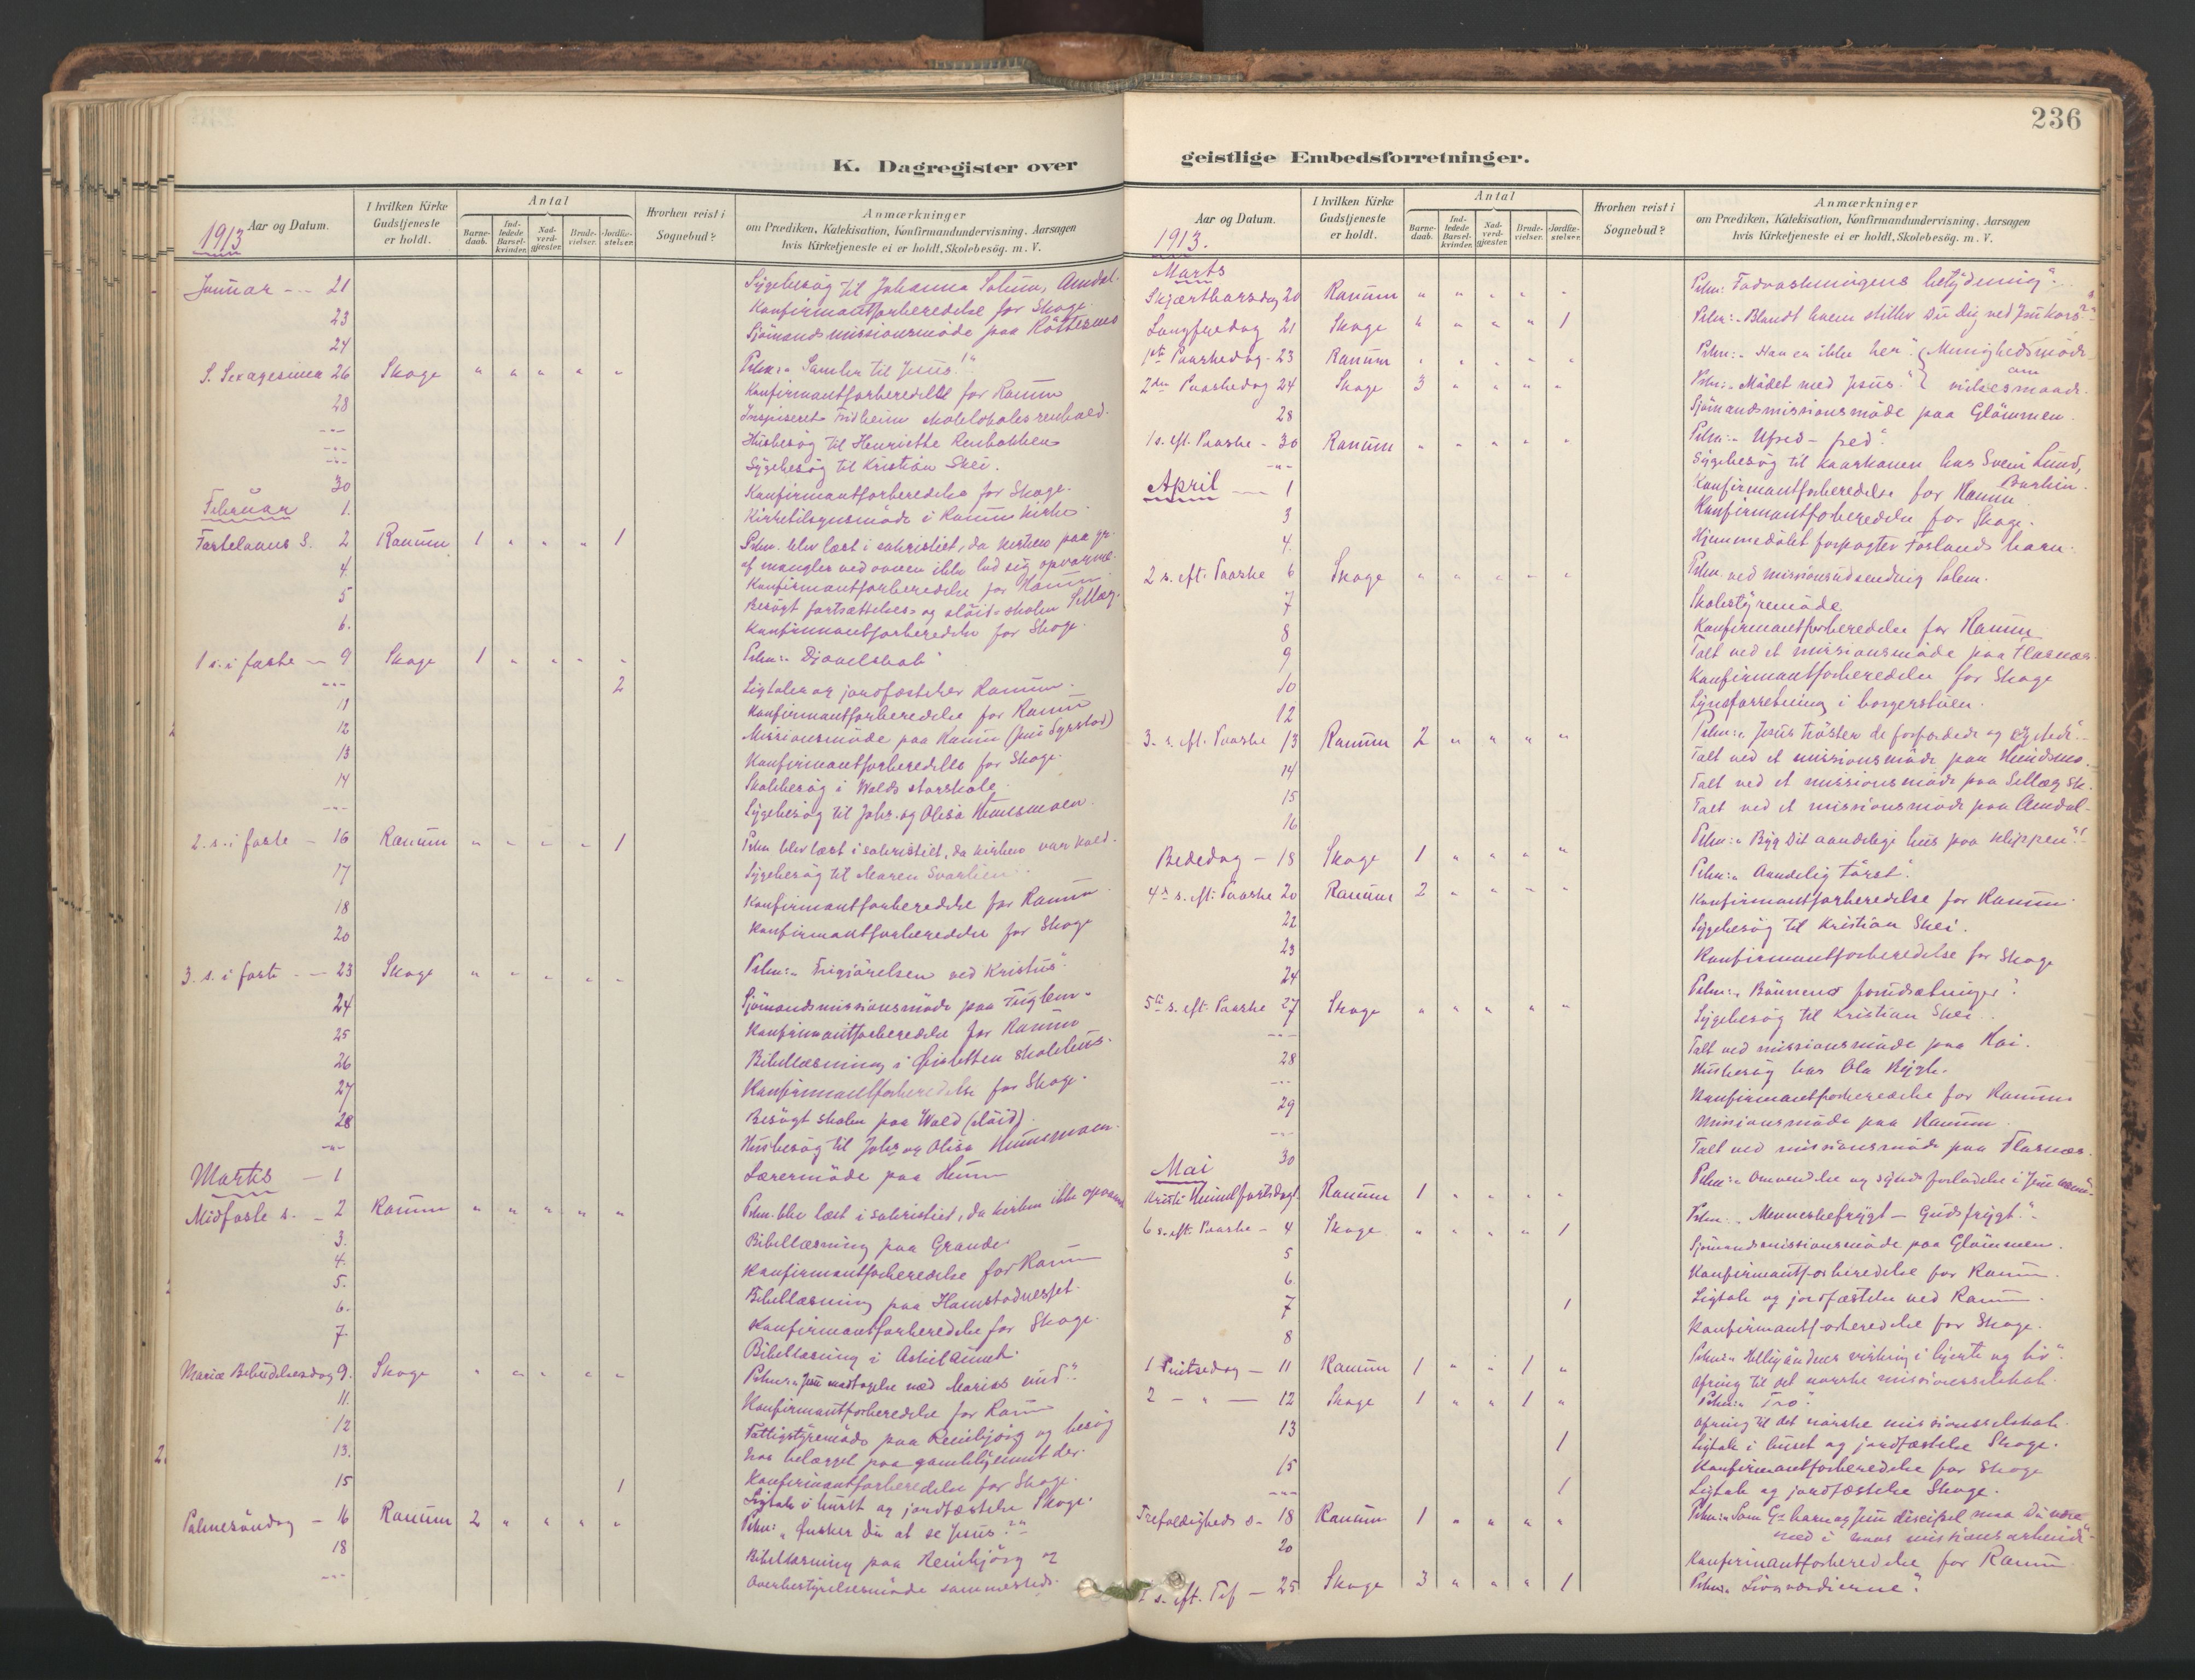 236
K. Dagregister over
geistlige Embedsforretninger.
Aar og Datum.
1913
I hvilken Kirke Gudstjeneste er holdt.
Antal
Barne-daab.
Ind-ledede Barsel-kvinder.
Nad-verd-gjæster.
Brude-vielser.
Jordfæ-stelser.
Hvorhen reist i Sognebud?
Anmærkninger
om Prædiken, Katekisation, Konfirmandundervisning. Aarsagen
hvis Kirketjeneste ei er holdt, Skolebesøg. m. V.
Januar --- 21 Sygebesøg til Johanna Solum, Amdal.
23 Konfirmantforberedelse for Skage.
24 Sjömandsmissionsmöde paa
S. Sexagesima 26 Skage " " " " " Prken: "Samler til Jesus!"
28 Konfirmantforberedelse for Ranum
--- Inspiseret Fridheim skolelokales renhold.
--- Husbesøg til Henriette
--- Sygebesøg til Kristian Skei.
30 Konfirmantforberedelse for Skage.
Februar 1. Kirketilsynsmöde i Ranum kirke.
Fastelavns S. 2 Ranum 1 " " " 1 Prkn. blev læst i sakristiet, da kirken paa gr.
af mangler ved ovnen ikke lod sig opvarme.
4. Konfirmantforberedelse for Ranum.
5 Besögt fortsættelses- og slöid-skolen
6. Konfirmantforberedelse for Skage.
1 s. i faste - 9 Skage 1 " " " " Prkn: "Djævelskab"
--- 2 Ligtaler og jordfæstelser Ranum.
11 Konfirmantforberedelse for Ranum
12 Missionsmöde paa Ranum
13 Konfirmantforberedelse for Skage.
14 Skolebesøg i Walds storskole.
--- Sygebesøg til Johs. og Olisa
2. s. i faste - 16 Ranum " " " " 1 Prkn blev læst i sakristiet, da kirken var kold.
17 Sygebesøg til Maren Svarlien.
18 Konfirmantforberedelse for Ranum
20 Konfirmantforberedelse for Skage
3. s. i faste --- 23 Skage " " " " " Prkn: "Frigjörelsen ved Kristus".
24 Sjömandsmissionsmöde paa Fuglem.
25 Konfirmantforberedelse for Ranum
26 Bibellæsning i skolehus.
27 Konfirmantforberedelse for Skage.
28 Besögt skolen paa Wald (slöid).
--- Husbesøg til Johs og Olisa
Marts - 1 Lærermöde paa Hunn
Midfaste s. - 2 Ranum " " " " " Prkn. blev læst i sakristiet, da kirken ikke
3. Bibellæsning paa Grande.
4. Konfirmantforberedelse for Ranum
5. Bibellæsning paa Hamstadnesset.
6. Konfirmantforberedelse for Skage.
7. Bibellæsning i
Mariæ Bebudelsesdag 9. Skage " " " " " Prkn: "Jesu modtagelse med Marias sind".
11. Konfirmantforberedelse for Ranum
12 Fattigstyremöde paa Reinbjörg og besøg
hos belægget paa gamlehjemmet der.
13. Konfirmantforberedelse for Skage.
15 1 Ligtale i huset og jordfæstelse Skage.
Palmesöndag - 16 Ranum 2 " " " " Prkn: "Önsker Du at se Jesus?"
18 Bibellæsning paa Reinbjörg og
--- Overbestyrelsesmöde sammesteds.
Aar og Datum.
1913.
I hvilken Kirke Gudstjeneste er holdt.
Antal
Barne-daab.
Ind-ledede Barsel-kvinder.
Nad-verd-gjæster.
Brude-vielser.
Jordfæ-stelser.
Hvorhen reist i Sognebud?
Anmærkninger
om Prædiken, Katekisation, Konfirmandundervisning. Aarsagen
hvis Kirketjeneste ei er holdt, Skolebesøg. m. V.
Marts
Skjærthorsdag 20 Ranum " " " " " Prkn: Fodvaskningens betydning".
Langfredag 21 Skage " " " " 1 Prkn: "Blandt hvem stiller Du Dig ved Jesu kors?"
1ste Paaskedag - 23 Ranum " " " " " Prkn: "Han er ikke her". Menighedsmöde
2den Paaskedag 24 Skage 3 " " " " Prkn: "Mödet med Jesus". om
28 Sjömandsmissionsmöde paa Glömmen.
1 s. eft. Paaske - 30 Ranum " " " " " Prkn: "Ufred - fred".
--- Sygebesøg til kaarkonen hos Svein Lund,
April --- 1 Konfirmantforberedelse for Ranum
3 Konfirmantforberedelse for Skage.
4. Hjemmedöbt forpagter Forlands barn.
2 s. eft. Paaske 6 Skage " " " " " Prkn ved missionsudsending Solem.
7 Skolestyremöde
8 Konfirmantforberedelse for Ranum
9 Talt ved et missionsmöde paa Flasnes.
10 Konfirmantforberedelse for Skage
12 Synsforretning i borgerstuen.
3. s. eft. Paaske 13 Ranum 2 " " " " Prkn: "Jesus tröster de
14 Talt ved et missionsmöde paa
15 Talt ved et missionsmöde paa
16 Talt ved et missionsmöde paa Amdal
Bededag - 18 Skage 1 " " " " Prkn: "Byg Dit aandelige hus paa klippen!"
4de s. eft. Paaske 20 Ranum 2 " " " " Prkn: "Aandelig törst".
22 Konfirmantforberedelse for Ranum.
23 Sygebesøg til Kristian Skei.
24 Konfirmantforberedelse for Skage
5te s. eft. Paaske 27 Skage " " " " " Prkn: "Bönnens forudsætninger".
--- Sygebesøg til Kristian Skei.
28 Talt ved missionsmöde paa
--- Husbesøg hos Ola
29 Konfirmantforberedelse for Ranum
--- Missionsmöde paa Ranum.
30 Talt ved missionsmöde paa Flasnes.
Mai
Kristi Himmelfartsdag 1. Ranum 1 " " " " Prkn: "Omvendelse og synds forladelse i Jesu navn".
6 s. eft. Paaske - 4 Skage " " " " 1 Prkn: "Menneskefrygt - Gudsfrygt".
5 Sjömandsmissionsmöde paa Glömmen.
6 Konfirmantforberedelse for Ranum.
7 1 Ligtale og jordfæstelse ved Ranum.
8 Konfirmantforberedelse for Skage.
1 Pintsedag - 11 Ranum 1 " " 1 " Prkn: "Helligåndens virkning i hjerte og liv".
Ofring til det norske missionsselskab.
2 - " - 12 Skage 1 " " 1 " Prkn: "Tro".
Ofring til det norske missionsselskab.
13 1 Ligtale i huset og jordfæstelse Skage.
15 Konfirmantforberedelse for Skage
--- 1 Ligtale og jordfæstelse Skage.
Trefoldigheds s. 18 Ranum 1 " " " " Prkn: "Som Gs barn og Jesu discipel maa Du være
med i hans missionsarbeide".
20 Konfirmantforberedelse for Ranum.
1 s. eft. Tref - 25 Skage 3 " " " 1 Prkn: "Livsværdierne".